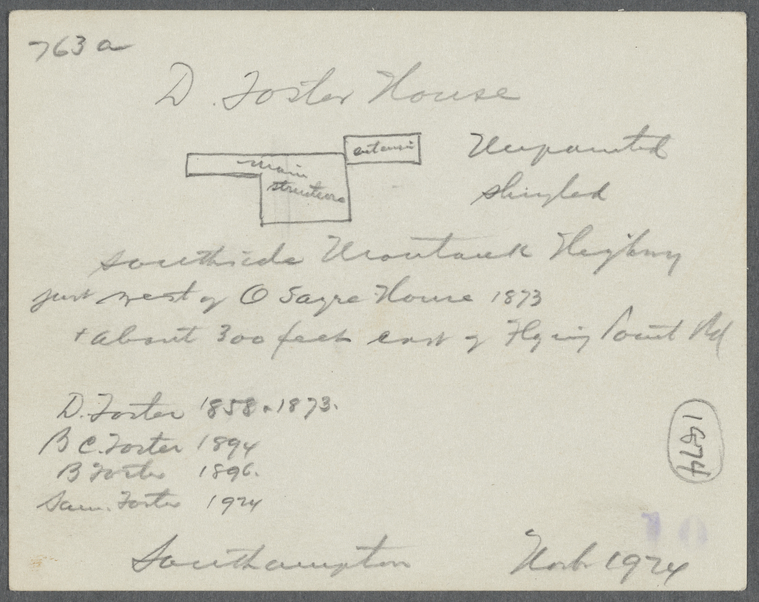 763a
D. Foster House
main
structure
extensn
Unpainted
shingled
southside Montauk Highwy
just west of O Sayre House 1873
+ about 300 feet east of Flying Point Rd
D. Foster 1858 & 1873.
B C. Foster 1894
B Foster 1896.
Sam. Foster 1924
1874
10
Southampton
1924